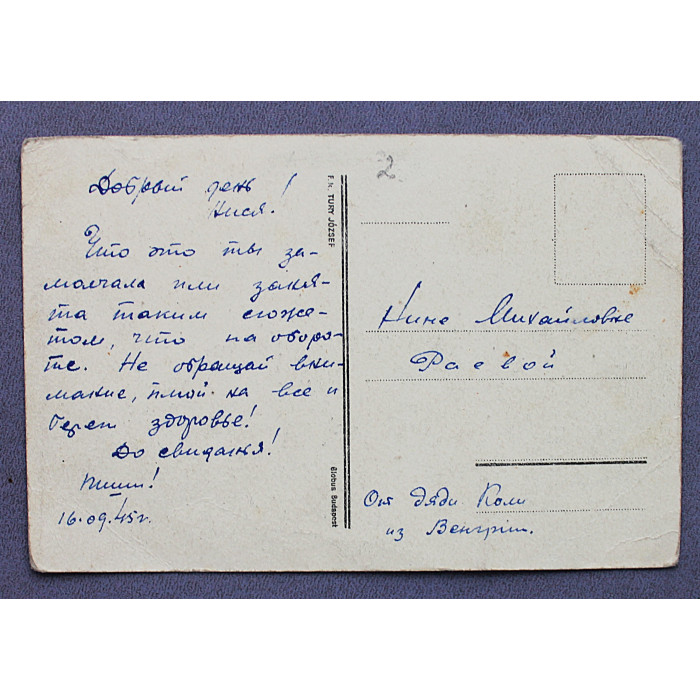 Добрый день!
Нися.
Что это ты за-
молчала или заня-
та таким сюже-
том, что на оборо-
те. Не обращай вни-
мание, плюй на все и
береги здоровье!
До свиданья!
Пиши!
16.09.45г.
F.k. TURY JÓZSEF
Globus Budapest
2
Нине Михайловне
Раевой
От дяди Коли
из Венгрии.